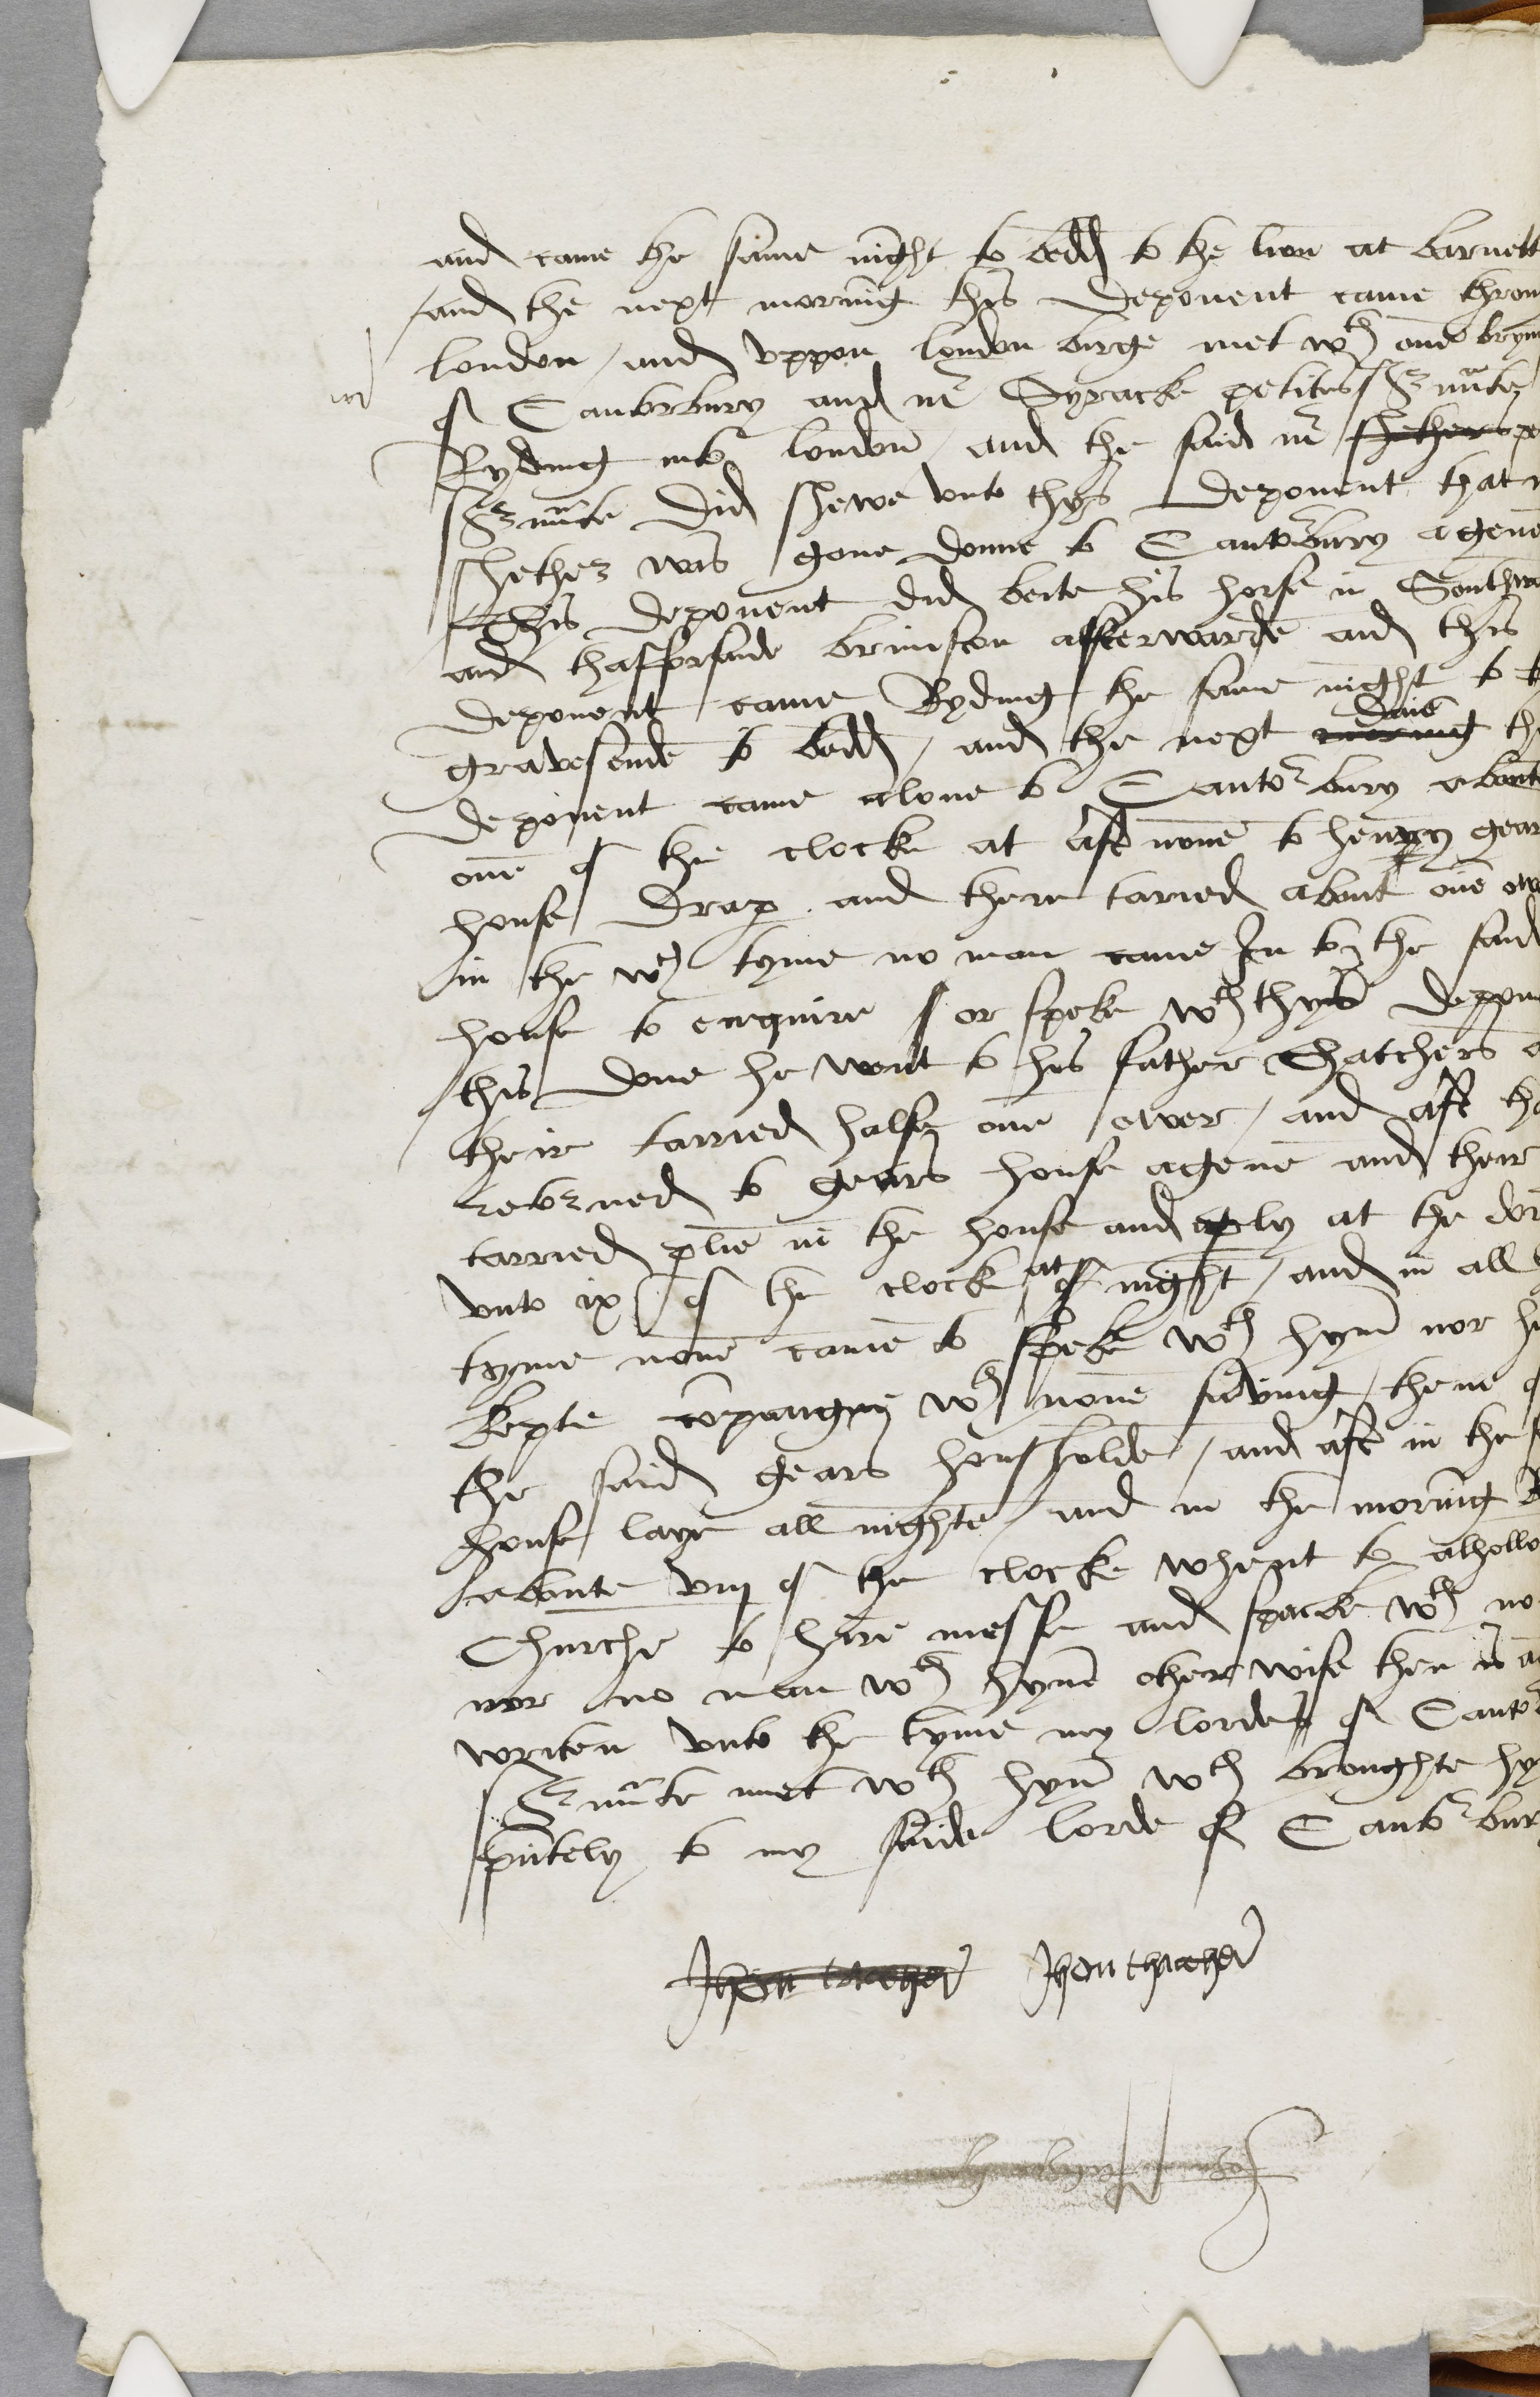 and came the same night to bedd to the lion at barnett
and the next morning this deponent came throu
london / and vppon london birge met wth one brym
of Canterbury and mr Syracke petites s̃runte
Ryding into london / and the said mr shether
s̃runte did shewe vnto thys deponent that
shether was gone doune to Cantorbury agene
This deponent did beite his horse in Southwa
and thafforsaide brimston afterwarde and this
deponent came Ryding the same night to
gravesende to bedd / and the next morning daie th
deponent came alone to Cantorbury about
one of the clocke at aft none to henry gear
house Drap and there taried about one ow
in the wch tyme no man came In to the said
house to enquire for or speke wth thys depon
this done he went to his father Thatchers
their tarried halfe one ower / and aft th
retorned to gears house agene and their
tarried ptlie in the house and ptly at the dor
vnto ix of the clock at night / and in all
tyme none came to speke wth hym nor h
kepte company wth none saving them of
the said gears housholde / and aft in the s
house laye all nighte / and in the morning
aboute viij of the clocke whent to alhollo
Churche to here messe and spacke wth no
nor no man wth hym other wise then is a
writen vnto the tyme my lorde of Cantor
s̃runte met wth hym wch broughte hy
pntely to my saide lorde of Cantorbur
Jhon thacher Jhon thacher